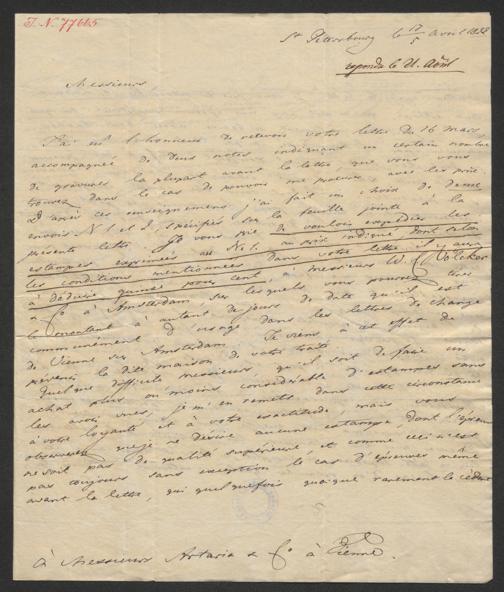 I. N. 77665
St Petersbourg le 17/5 Avril 1828
repondu le 21. Août
Messieurs
J'ai eu l'honneur de recevoir votre lettre du 16 mars
accompagnée de deux notes indiquant un certain nombre
de gravures la plupart avant la lettre que vous vous
trouvez dans le cas de pouvoir me procurer, avec les prix.
D'après ces renseignemens j'ai fait un choix de deux
envois N. 1 et 2, spécifiés sur la feuille jointe à la
présente lettre. Je vous prie de vouloir expédier les
estampes exprimées au No 1. au prix indiqué dont selon
les conditions mentionnées dans votre lettre il y aura
à déduire quinze pour cent à messieurs W. Volcker
& Co à Amsterdam, sur lesquels vous pouvez tirer
le montant à autant de jours de date qu'il est
communément d'usage dans les lettres de change
de Vienne sur Amsterdam. Je viens à cet effet de
prévenir la dite maison de votre traite.
Quelque difficile messieurs, qu'il soit de faire un
achat plus ou moins considérable d'estampes sans
les avoir vues, je m'en remets dans cette circonstance
à votre loyauté et à votre exactitude, mais vous
observerez que je ne desire aucune estampe, dont l'épreuve
ne soit pas de qualité supérieure, et comme ceci n'est
pas toujours sans exception le cas d'épreuves même
avant la lettre, qui quelquefois quoique rarement le cèdent
à Messieurs Artaria & Co à Vienne.